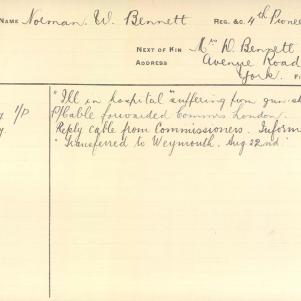 NAME Norman W. Bennett REG. &C. 4th Pionee
NEXT OF KIN Mrs D. Bennett
ADDRESS Avenue Road
York.
"Ill in hospital" suffering from gun sh
y 1/P P/Cable forwarded Commrs London.
y Reply cable from Commissioners. Inform
"Transferred to Weymouth. Aug 22nd"